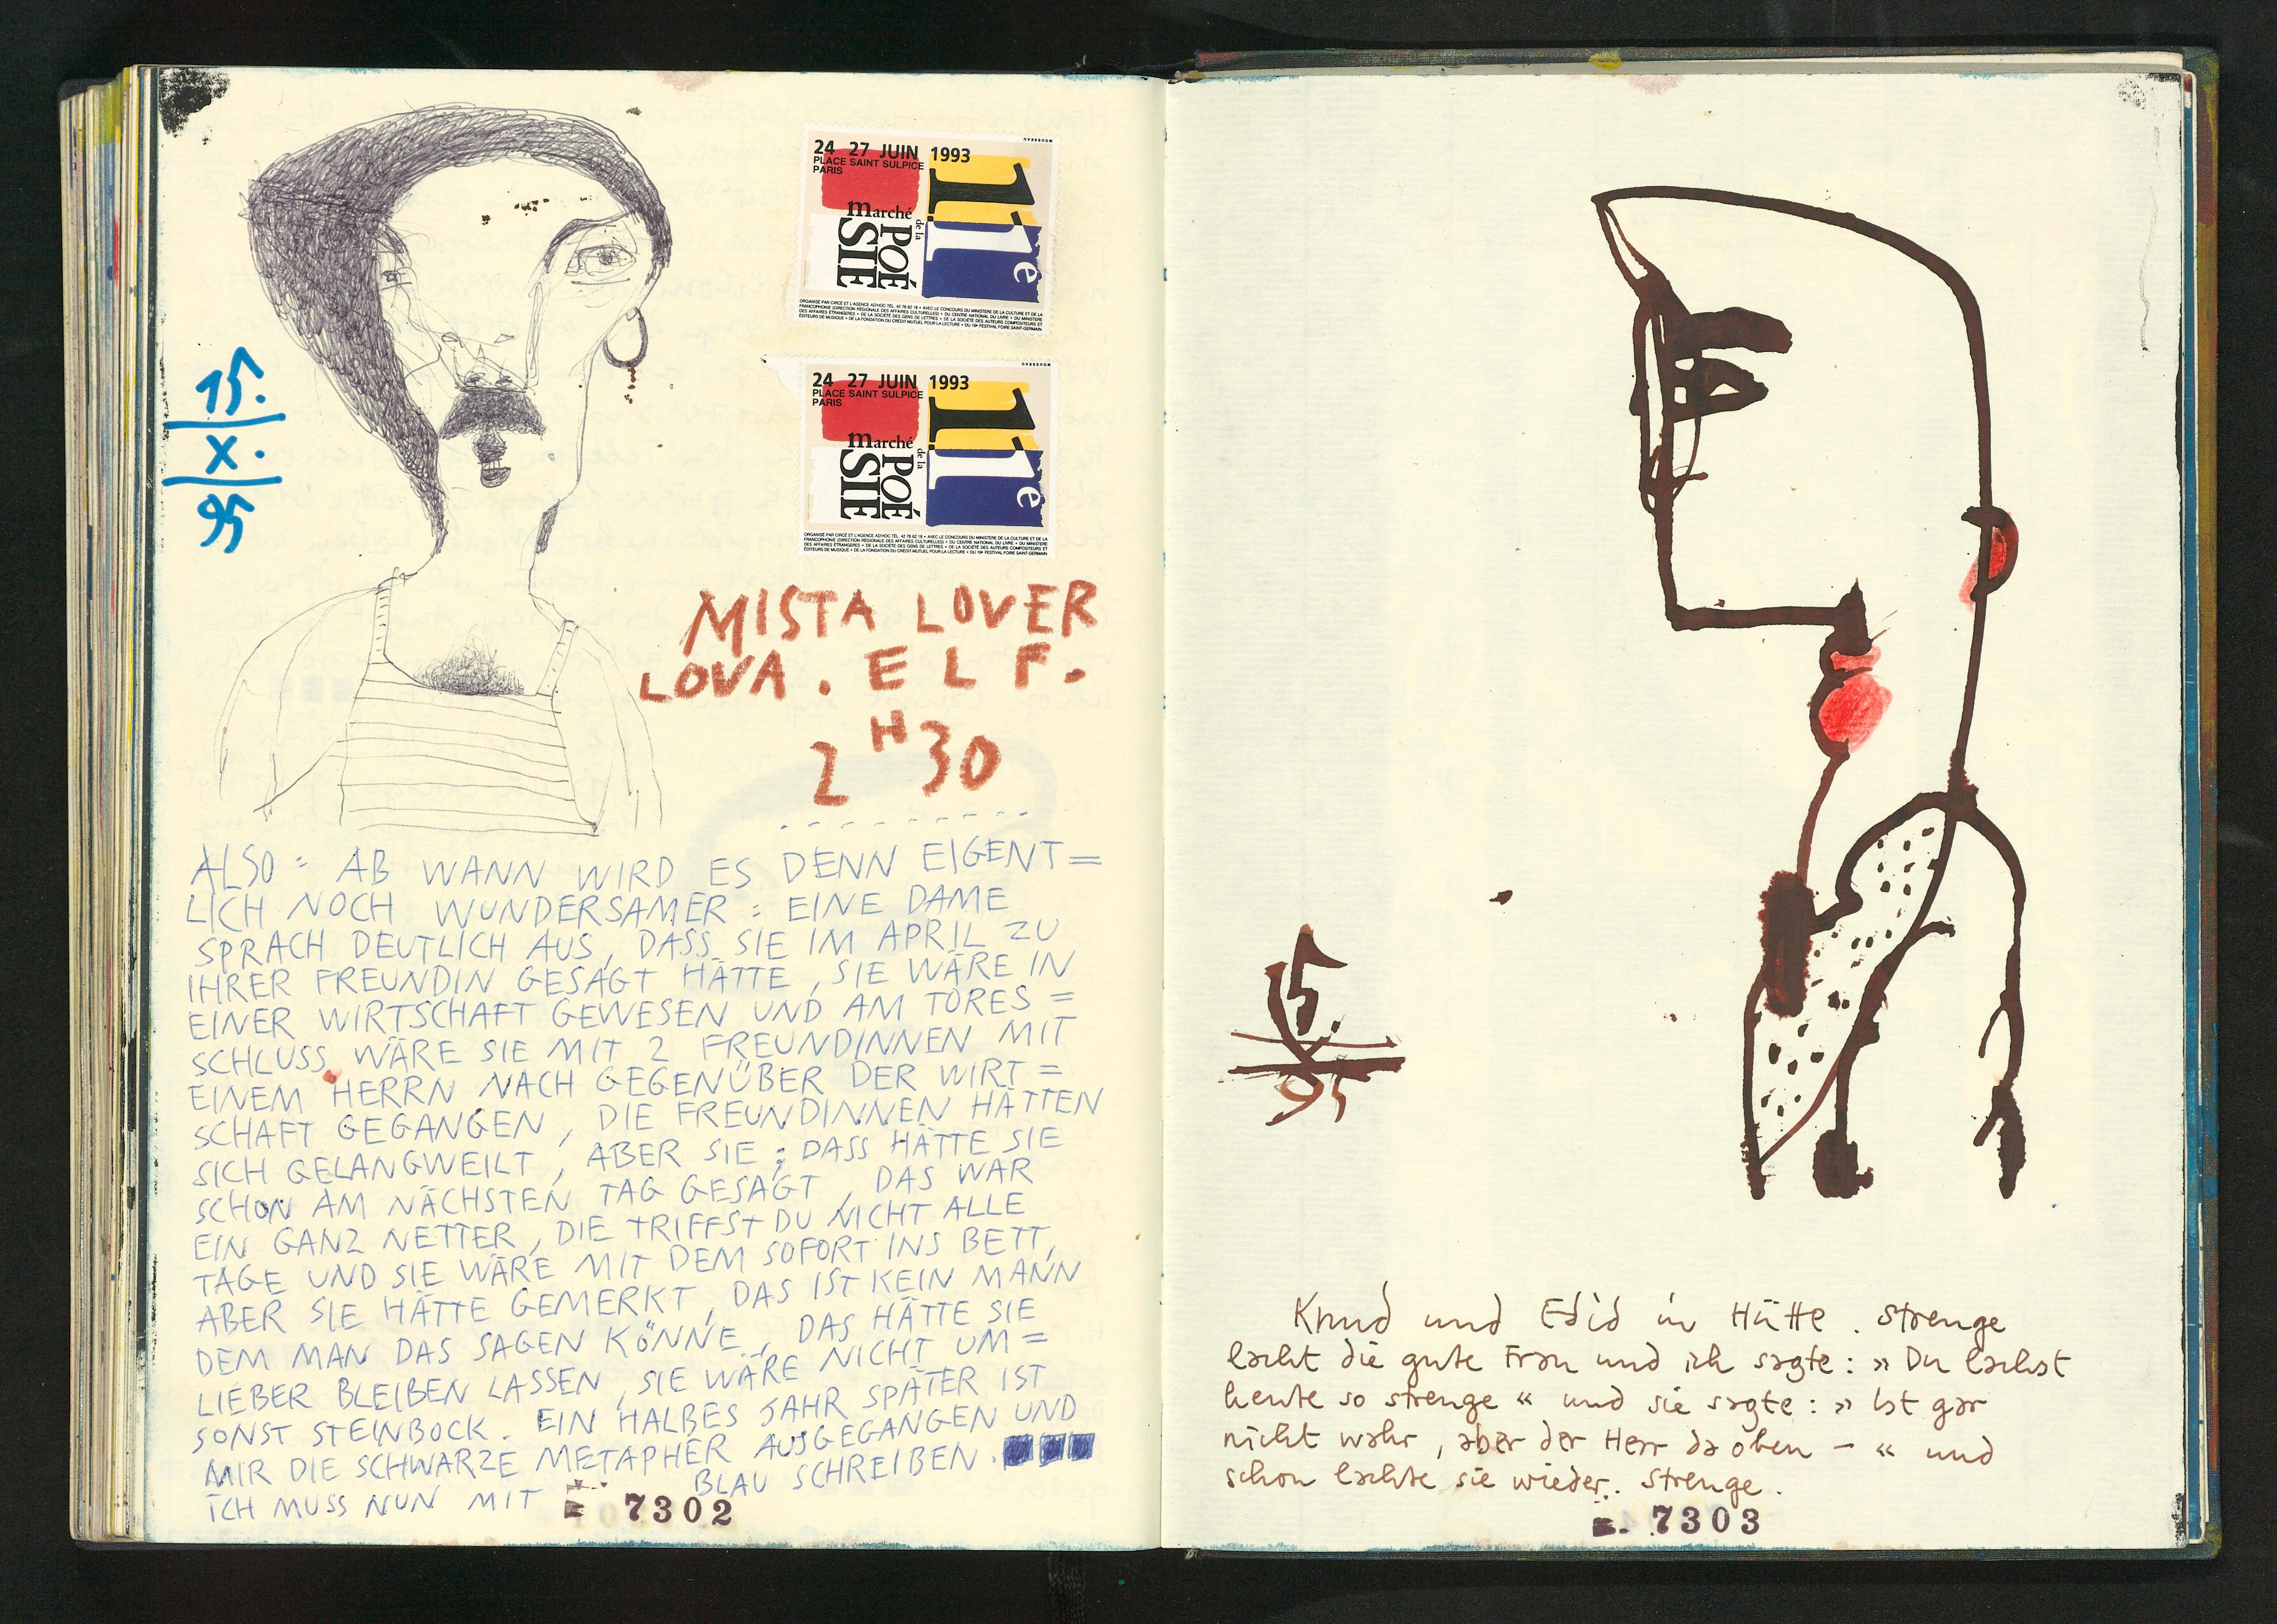 15.
X.
95
MOUSSEAU
24 27 JUIN 1993
PLACE SAINT SULPICE
PARIS
11e
marché
de la
POÉ
SIE
ORGANISÉ PAR CIRCÉ ET L'AGENCE AD'HOC TÉL. 42 78 62 19 • AVEC LE CONCOURS DU MINISTERE DE LA CULTURE ET DE LA
FRANCOPHONIE (DIRECTION RÉGIONALE DES AFFAIRES CULTURELLES) • DU CENTRE NATIONAL DU LIVRE • DU MINISTERE
DES AFFAIRES ÉTRANGERES • DE LA SOCIÉTÉ DES GENS DE LETTRES • DE LA SOCIÉTÉ DES AUTEURS COMPOSITEURS ET
ÉDITEURS DE MUSIQUE • DE LA FONDATION DU CRÉDIT MUTUEL POUR LA LECTURE • DU 16e FESTIVAL FOIRE SAINT-GERMAIN
MOUSSEAU
24 27 JUIN 1993
PLACE SAINT SULPICE
PARIS
11e
marché
de la
POÉ
SIE
ORGANISÉ PAR CIRCÉ ET L'AGENCE AD'HOC TÉL. 42 78 62 19 • AVEC LE CONCOURS DU MINISTERE DE LA CULTURE ET DE LA
FRANCOPHONIE (DIRECTION RÉGIONALE DES AFFAIRES CULTURELLES) • DU CENTRE NATIONAL DU LIVRE • DU MINISTERE
DES AFFAIRES ÉTRANGERES • DE LA SOCIÉTÉ DES GENS DE LETTRES • DE LA SOCIÉTÉ DES AUTEURS COMPOSITEURS ET
ÉDITEURS DE MUSIQUE • DE LA FONDATION DU CRÉDIT MUTUEL POUR LA LECTURE • DU 16e FESTIVAL FOIRE SAINT-GERMAIN
MISTA LOVER
LOVA. ELF.
2 H 30
ALSO: AB WANN WIRD ES DENN EIGENT=
LICH NOCH WUNDERSAMER: EINE DAME
SPRACH DEUTLICH AUS, DASS SIE IM APRIL ZU
IHRER FREUNDIN GESAGT HÄTTE, SIE WÄRE IN
EINER WIRTSCHAFT GEWESEN UND AM TORES=
SCHLUSS WÄRE SIE MIT 2 FREUNDINNEN MIT
EINEM HERRN NACH GEGENÜBER DER WIRT=
SCHAFT GEGANGEN, DIE FREUNDINNEN HÄTTEN
SICH GELANGWEILT, ABER SIE; DASS HÄTTE SIE
SCHON AM NÄCHSTEN TAG GESAGT, DAS WAR
EIN GANZ NETTER, DIE TRIFFST DU NICHT ALLE
TAGE UND SIE WÄRE MIT DEM SOFORT INS BETT,
ABER SIE HÄTTE GEMERKT, DAS IST KEIN MANN
DEM MAN DAS SAGEN KÖNNE, DAS HÄTTE SIE
LIEBER BLEIBEN LASSEN, SIE WÄRE NICHT UM=
SONST STEINBOCK. EIN HALBES JAHR SPÄTER IST
MIR DIE SCHWARZE METAPHER AUSGEGANGEN UND
ICH MUSS NUN MIT BLAU SCHREIBEN.
7302
15.
95
Knud und Edid in Hütte. Strenge
lacht die gute Frau und ich sagte: » Du lachst
heute so strenge « und sie sagte: » Ist gar
nicht wahr, aber der Herr da oben – « und
schon lachte sie wieder. Strenge.
7303